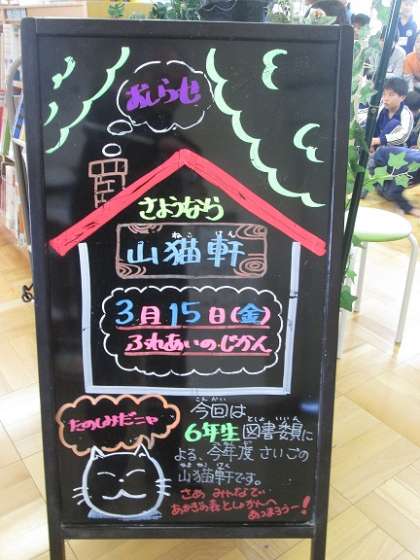 おしらせ
さようなら
山猫軒
3月15日(金)
ふれあいの・じかん
たのしみだニャ
今回は
6年生図書委員に
よる、今年度さいごの
山猫軒です。
さぁ みんなで
としょかんへ
あつまろうー!